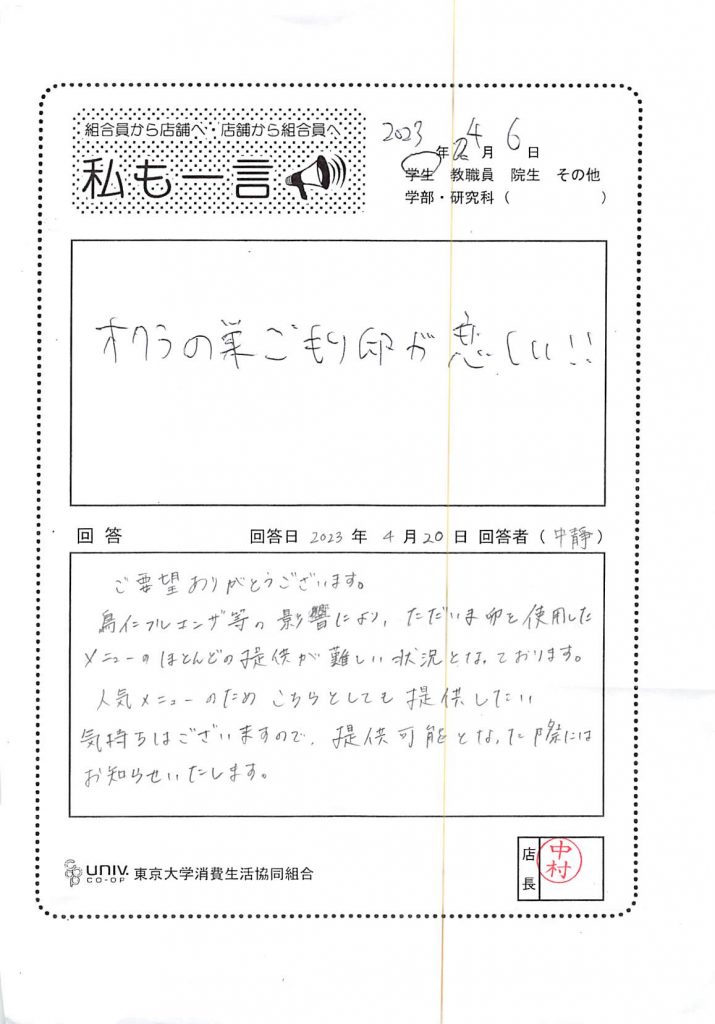 組合員から店舗へ・店舗から組合員へ
私も一言
2023年 4月 6日
学生 教職員 院生 その他
学部・研究科（ ）
オクラの巣ごもり卵が恋しい!!
回答 回答日 2023年 4月20日 回答者（中靜）
ご要望ありがとうございます。
鳥インフルエンザ等の影響により、ただいま卵を使用した
メニューのほとんどの提供が難しい状況となっております。
人気メニューのため こちらとしても提供したい
気持ちはございますので、提供可能となった際には
お知らせいたします。
店長
中村
UNIV.
CO-OP
東京大学消費生活協同組合